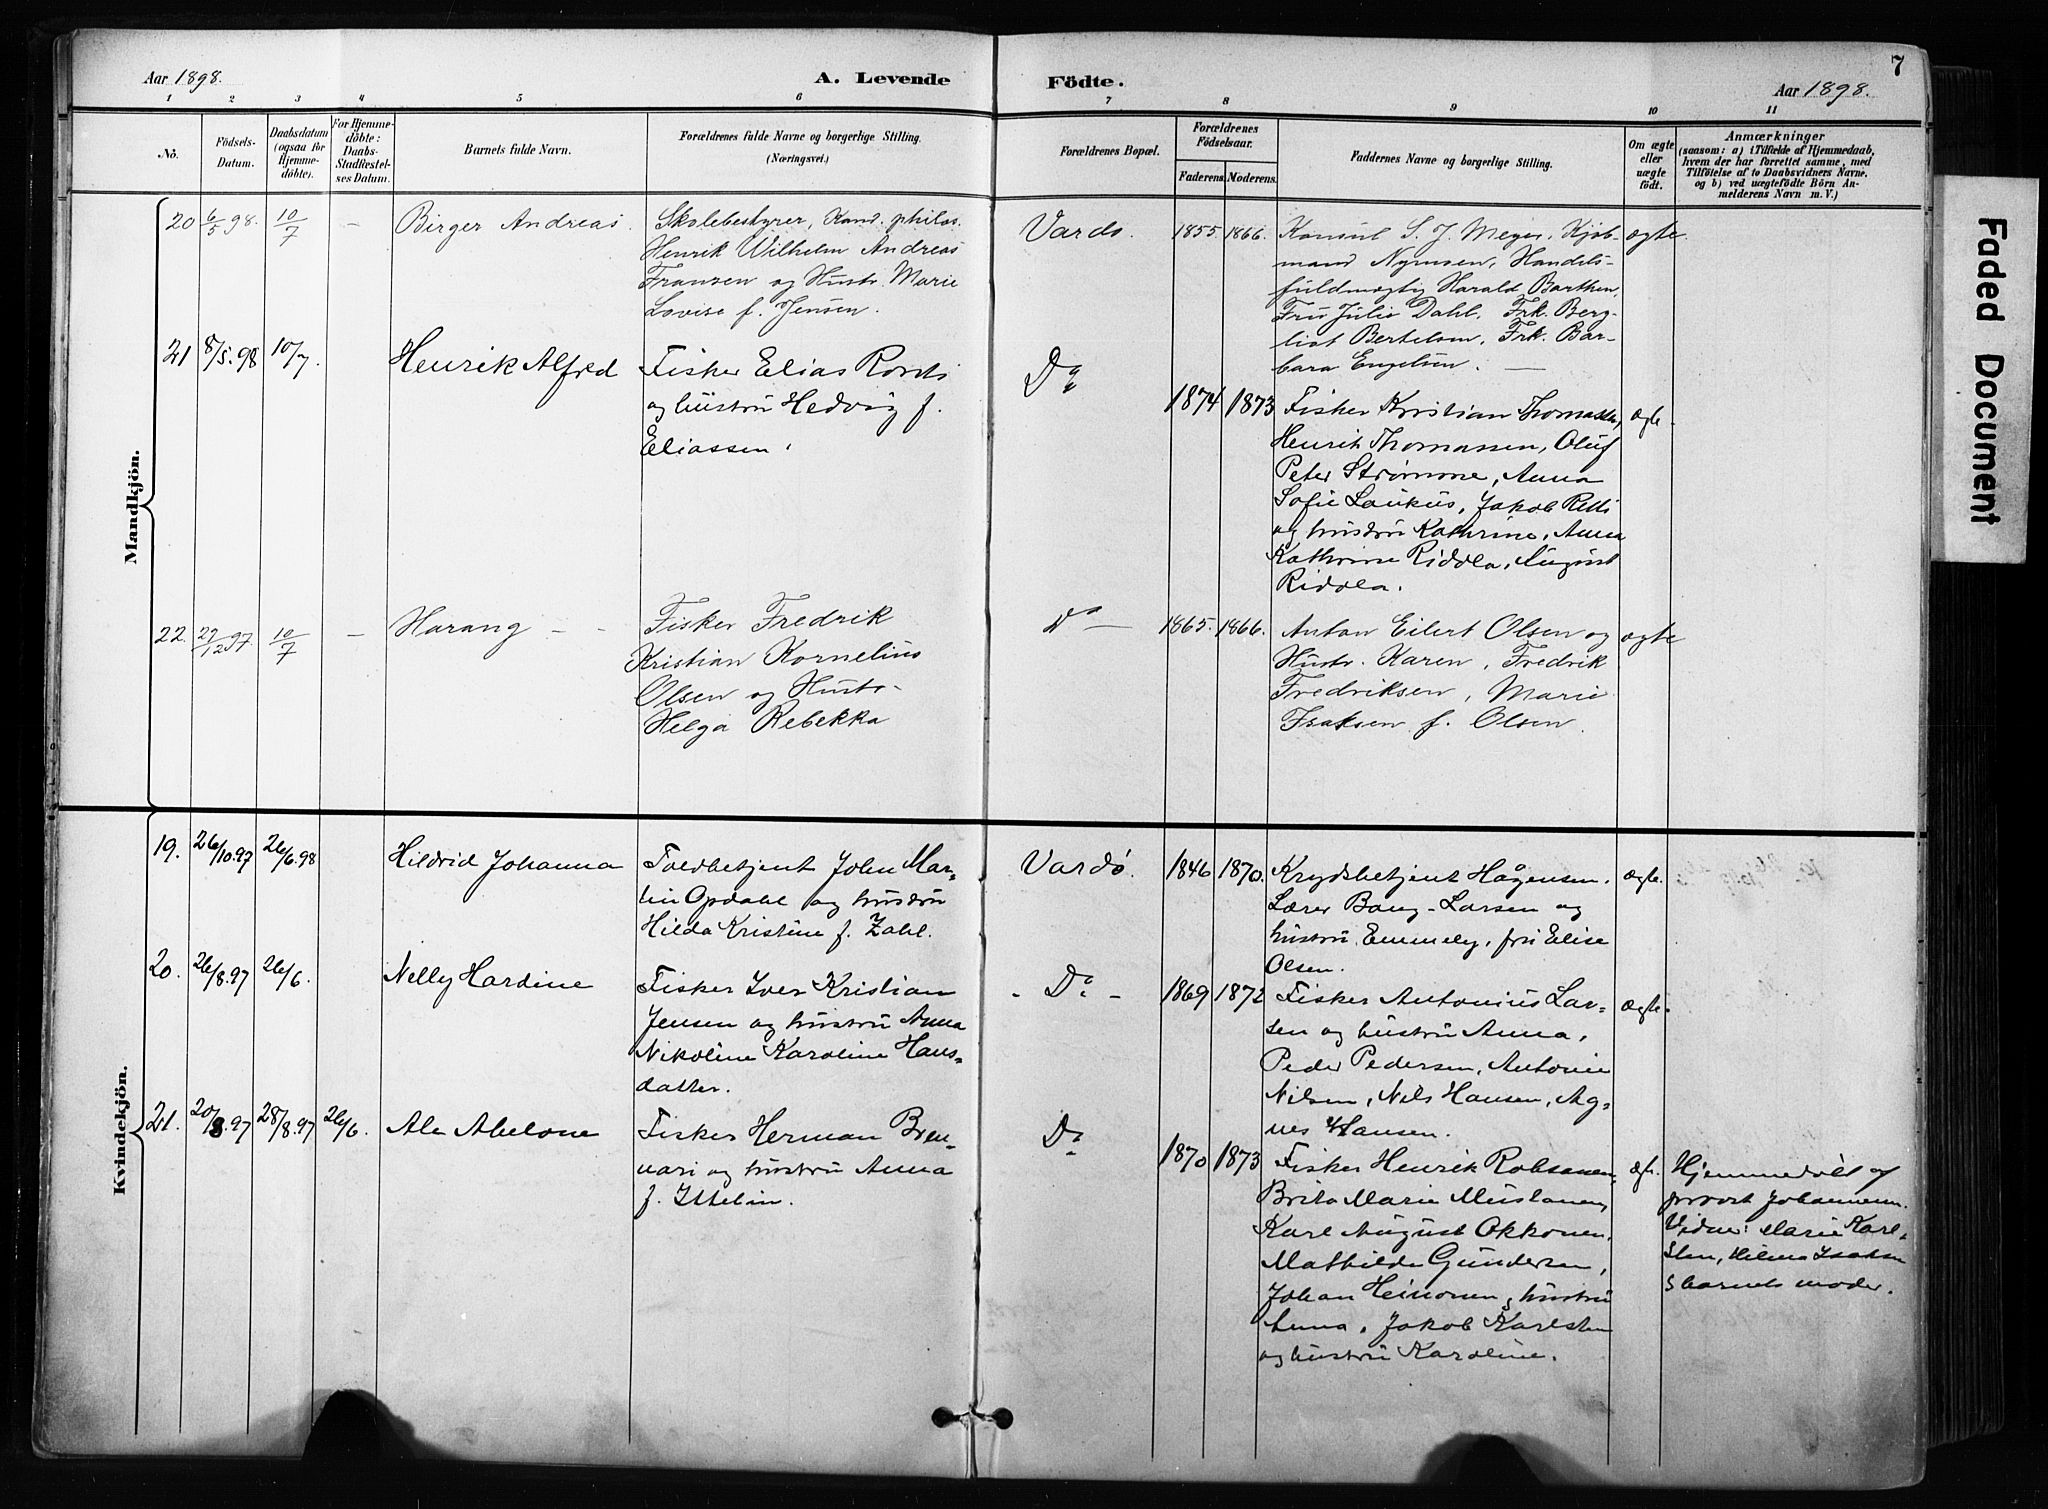 Aar 1898.
A. Levende
Födte.
7
Aar 1898.
1 2 3 4 5 6 7 8 9 10 11
No.
Födsels-
Datum.
Daabsdatum
(ogsaa for
Hjemme-
döbte).
For Hjemme-
döbte:
Daabs-
Stadfestel-
ses Datum.
Barnets fulde Navn.
Forældrenes fulde Navne og borgerlige Stilling.
(Næringsvei.)
Forældrenes Bopæl.
Forældrenes
Födselsaar.
Faderens. Moderens.
Faddernes Navne og borgerlige Stilling.
Om ægte
eller
uægte
födt.
Anmærkninger
(saasom: a) i Tilfælde af Hjemmedaab,
hvem der har forrettet samme, med
Tilföielse af to Daabsvidners Navne.
og b) ved uægtefödte Börn An-
melderens Navn m. V.)
Faded Document
Mandkjön.
20 6/5 98. 10/7 – Birger Andreas.
Skolebestyrer, Kand. philos.
Henrik Wilhelm Andreas
Fransen og Hustr. Marie
Lovise f. Jensen.
Vardö. 1855. 1866.
Konsul S. J. Meyer, Kjøb-
mand Nymsen, Handels-
fuldmægtig Harald Barthen,
Fru Julie Dahl, Frk. Berg-
liot Bertelsen, Frk. Bar-
bara Engelsen.
ægte.
21 8/5.98 10/7. Henrik Alfred
Fisker Elias Rondi
og hustru Hedvig f.
Eliassen.
Do 1874 1873
Fisker Kristian Thomassen,
Henrik Thomassen, Oluf
Peter Strømme, Anna
Sofie Laukus, Jakob Reldi
og hustru Kathrine, Anna
Kathrine Riddla, August
Riddla.
ægte.
22. 29/12 97. 10/7 – Harang – –
Fisker Fredrik
Kristian Kornelius
Olsen og Hustr.
Helga Rebekka
Do – 1865. 1866.
Anton Eilert Olsen og
Hustr. Karen, Fredrik
Fredriksen, Marie
Isaksen f. Olsen.
ægte
Kvindekjön.
19. 26/10.97 26/6.98 Hildrid Johanna
Toldbetjent John Mar-
tin Opdahl og hustru
Hilda Kristine f. Zahl.
Vardø. 1846 1870.
Krydsbetjent Hågensen,
Lærer Bang-Larsen og
hustru Emmely, fru Elise
Olsen.
ægte.
20. 26/8.97 26/6. Nelly Hardine
Fisker Iver Kristian
Jensen og hustru Anna
Nikoline Karoline Hans-
datter.
- Do - 1869 1872
Fisker Antonius Lar-
sen og hustru Anna,
Peder Pedersen, Antonie
Nilsen, Nils Hansen, Ag-
nes Hansen.
ægte.
21. 20/8.97 28/8.97 26/6. Ale Abelone
Fisker Herman Bren-
nari og hustru Anna
f. Ittelin.
Do 1870 1873
Fisker Henrik Robsanen,
Brita Marie Mustanen,
Karl August Okkonen,
Mathilde Gundersen,
Johan Heinonen og hustru
Anna, Jakob Karlsten
og hustru Karoline.
ægt.
Hjemmedöbt af
provst Johannesen.
Vidner: Marie Karl-
sten, Hilma Isaksen
& barnets moder.